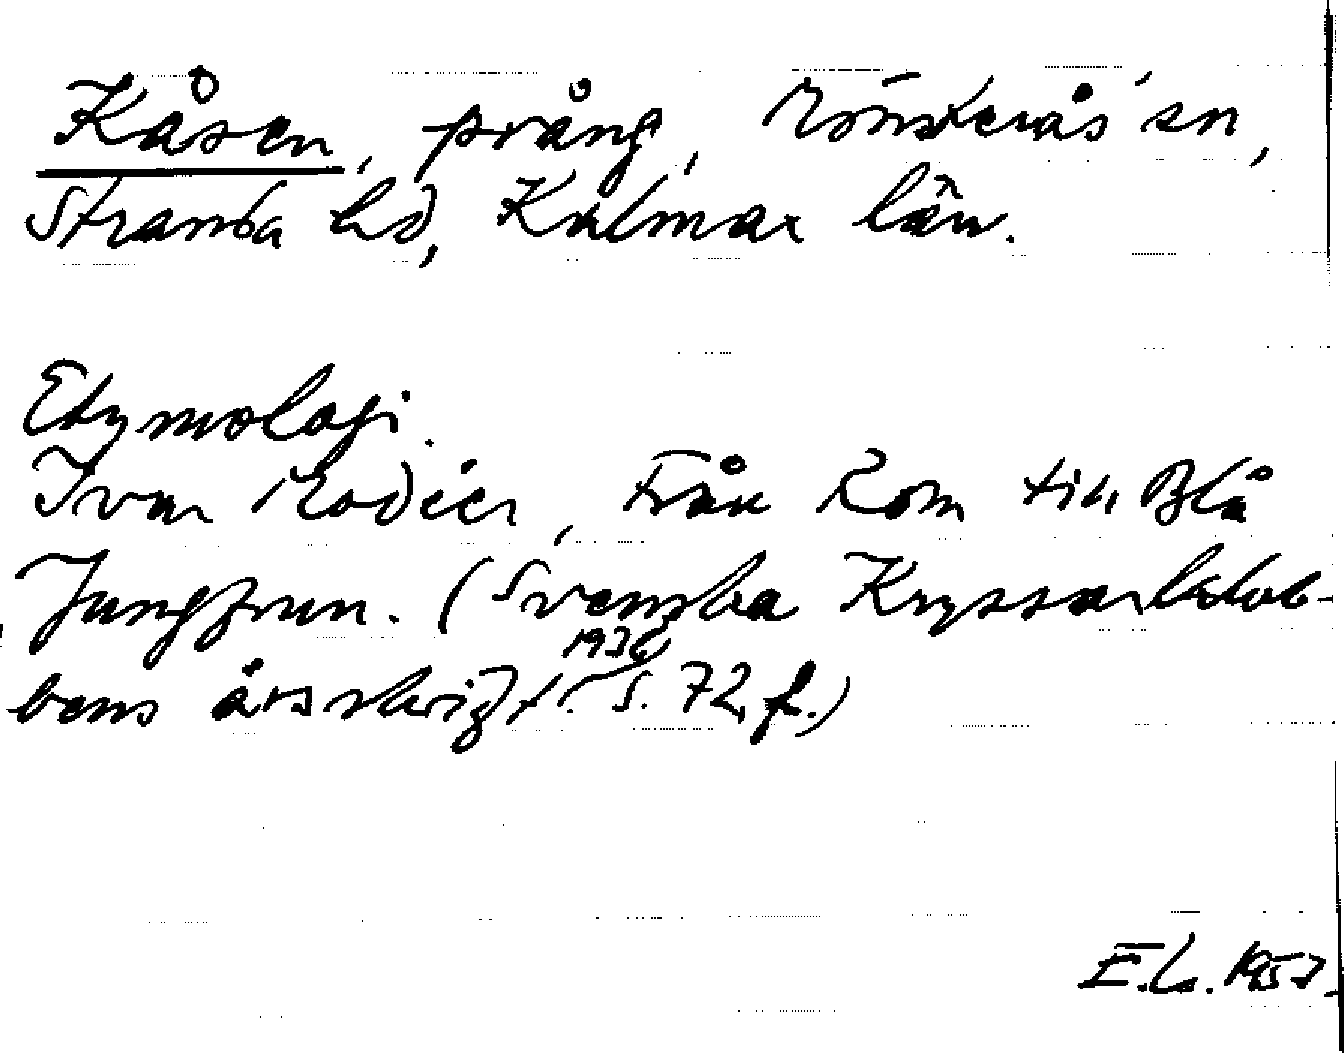 Kåsen, prång, Mönsterås sn,
Stranda hd, Kalmar län.
Etymologi.
Ivar Modéer, Från Rom till Blå
Jungfrun. (Svenska Kryssarklub-
bens årsskrift 1936 s. 72 f.)
E.L. 1957.